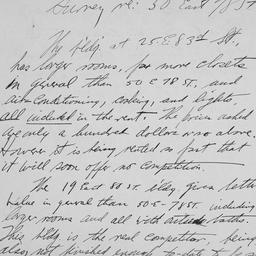 Survey re: 50 East 78 St
My bldg. at 25 E 83rd St.,
has larger rooms, far more closets
in general than 50 E 78 St, and
air conditioning, cooking, and lights,
all included in the rent. The prices asked
are only a hundred dollars or so above.
However it is being rented so fast that
it will soon offer no competition.
The 19 East 80 St. bldg. gives better
value in general than 50 E-78 St. including
larger rooms and all with outside baths.
This bldg. is the real competitor, being
also not finished enough to date to